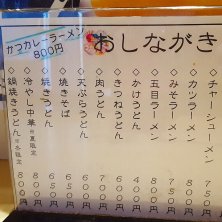 おしながき
かつカレーラーメン
800円
◇チャーシューメン
◇カツラーメン
◇みそラーメン
◇五目ラーメン
◇かけうどん
◇きつねうどん
◇肉うどん
◇天ぷらうどん
◇焼きそば
◇焼きうどん
◇冷やし中華 ※夏限定
◇鍋焼きうどん ※冬限定